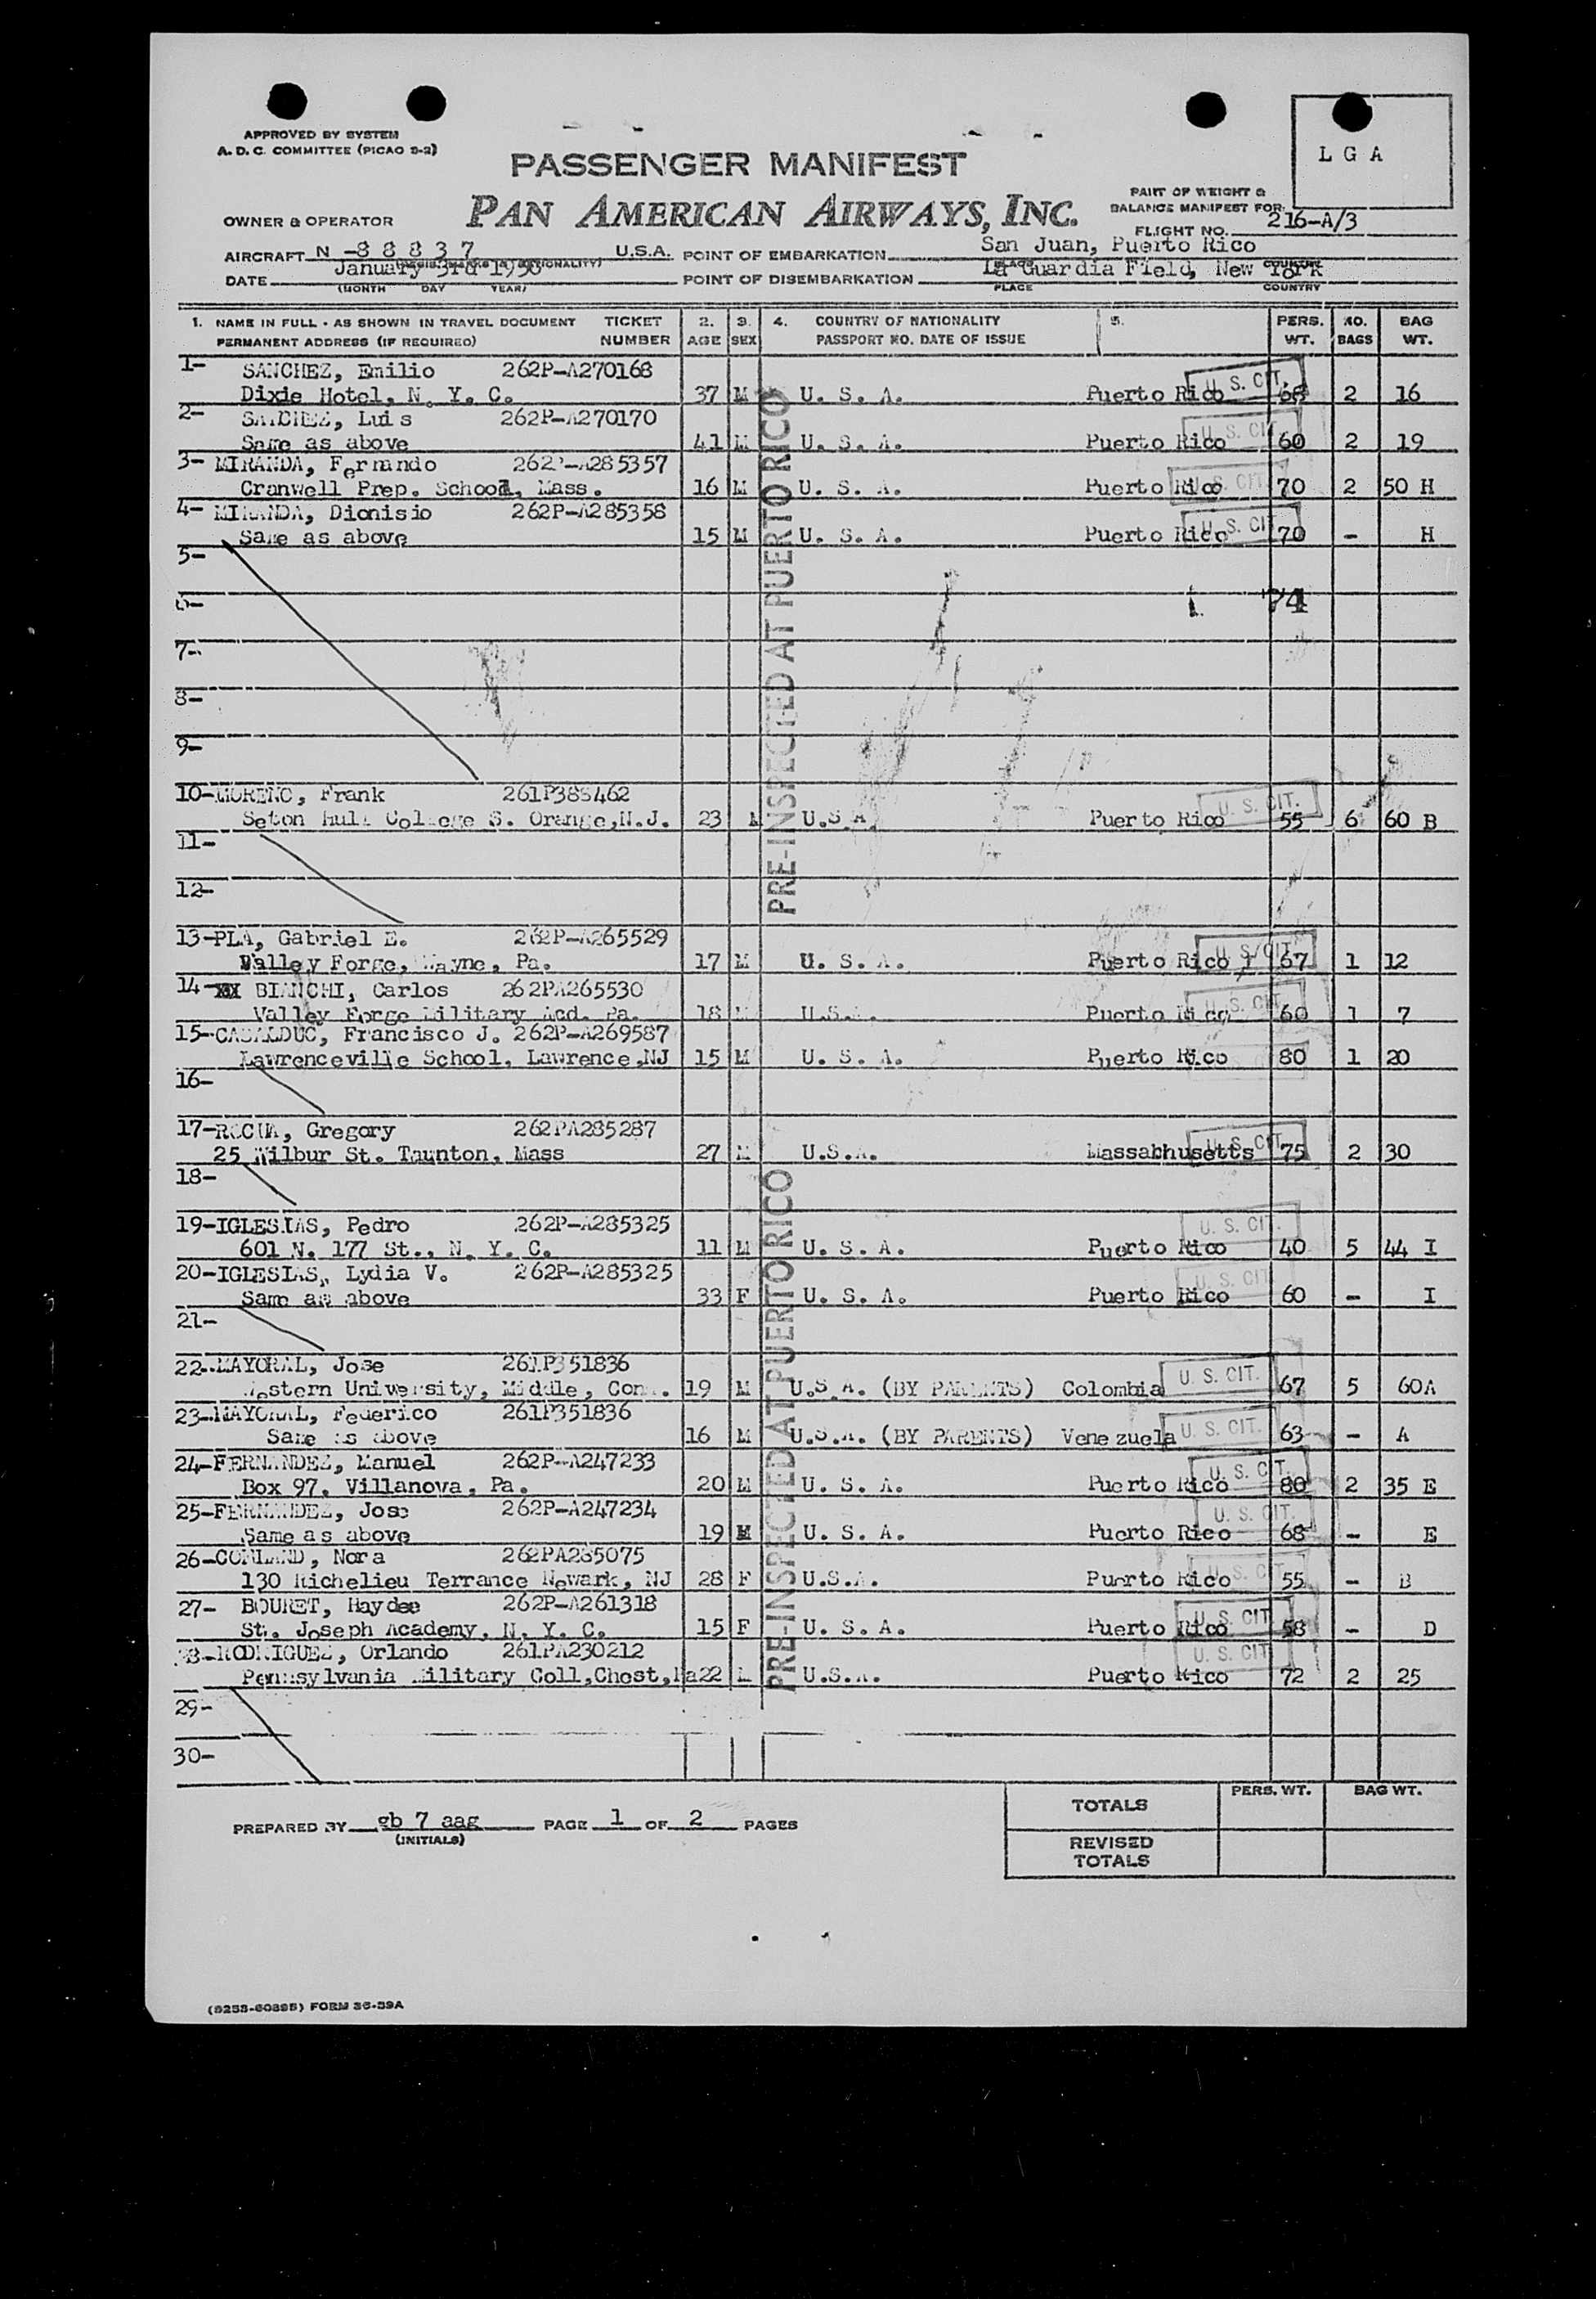 APPROVED BY SYSTEM
A. D. C. COMMITTEE (PICAO 9-2)
L G A
PASSENGER MANIFEST
PAN AMERICAN AIRWAYS, INC.
PART OF WEIGHT &
BALANCE MANIFEST FOR
OWNER & OPERATOR
FLIGHT NO. 216-A/3
AIRCRAFT N -88837 U.S.A. POINT OF EMBARKATION San Juan, Puerto Rico
DATE January 3rd 1950 POINT OF DISEMBARKATION La Guardia Field, New York
(MONTH DAY YEAR) PLACE COUNTRY
1. NAME IN FULL - AS SHOWN IN TRAVEL DOCUMENT TICKET 2. 3. 4. COUNTRY OF NATIONALITY 5. PERS. NO. BAG
PERMANENT ADDRESS (IF REQUIRED) NUMBER AGE SEX PASSPORT NO. DATE OF ISSUE WT. BAGS WT.
1- SANCHEZ, Emilio 262P-A270168
Dixie Hotel, N. Y. C. 37 M U. S. A. Puerto Rico U. S. CIT. 68 2 16
2- SANCHEZ, Luis 262P-A270170
Same as above 41 M U. S. A. Puerto Rico U. S. CIT. 60 2 19
3- MIRANDA, Fernando 262P-A285357
Cranwell Prep. School, Mass. 16 M U. S. A. Puerto Rico U. S. CIT. 70 2 50 H
4- MIRANDA, Dionisio 262P-A285358
Same as above 15 M U. S. A. Puerto Rico U. S. CIT. 70 - H
5-
6- 74
7-
8-
9-
PRE-INSPECTED AT PUERTO RICO
10-MORENO, Frank 261P388462
Seton Hall College S. Orange,N.J. 23 M U.S.A. Puerto Rico U. S. CIT. 55 6 60 B
11-
12-
13-PLA, Gabriel E. 262P-A265529
Valley Forge, Wayne, Pa. 17 M U. S. A. Puerto Rico U. S. CIT. 67 1 12
14-XX BIANCHI, Carlos 262PA265530
Valley Forge Military Acd. Pa. 18 M U.S.A. Puerto Rico U. S. CIT. 60 1 7
15-CABALDUC, Francisco J. 262P-A269587
Lawrenceville School, Lawrence,NJ 15 M U. S. A. Puerto Rico 80 1 20
16-
17-ROCHA, Gregory 262PA285287
25 Wilbur St. Taunton, Mass 27 M U.S.A. Massachusetts U. S. CIT. 75 2 30
18-
19-IGLESIAS, Pedro 262P-A285325
601 N. 177 St., N. Y. C. 11 M U. S. A. Puerto Rico U. S. CIT. 40 5 44 I
20-IGLESIAS, Lydia V. 262P-A285325
Same as above 33 F U. S. A. Puerto Rico U. S. CIT. 60 - I
21-
22-MAYORAL, Jose 261P351836
Western University, Middle, Conn. 19 M U.S.A. (BY PARENTS) Colombia U. S. CIT. 67 5 60A
23-MAYORAL, Federico 261P351836
Same as above 16 M U.S.A. (BY PARENTS) Venezuela U. S. CIT. 63 - A
24-FERNANDEZ, Manuel 262P-A247233
Box 97, Villanova, Pa. 20 M U. S. A. Puerto Rico U. S. CIT. 80 2 35 E
25-FERNANDEZ, Jose 262P-A247234
Same as above 19 M U. S. A. Puerto Rico U. S. CIT. 68 - E
26- Nora 262PA285075
130 Richelieu Terrance Newark, NJ 28 F U.S.A. Puerto Rico U. S. CIT. 55 - B
27- BOURET, Haydee 262P-A261318
St. Joseph Academy, N. Y. C. 15 F U. S. A. Puerto Rico U. S. CIT. 58 - D
28-RODRIGUEZ, Orlando 261PA230212
Pennsylvania Military Coll,Chest,Pa 22 M U.S.A. Puerto Rico U. S. CIT. 72 2 25
PRE-INSPECTED AT PUERTO RICO
29-
30-
PERS. WT. BAG WT.
TOTALS
PREPARED BY gb 7 aag PAGE 1 OF 2 PAGES
(INITIALS)
REVISED
TOTALS
(9253-60895) FORM 36-39A